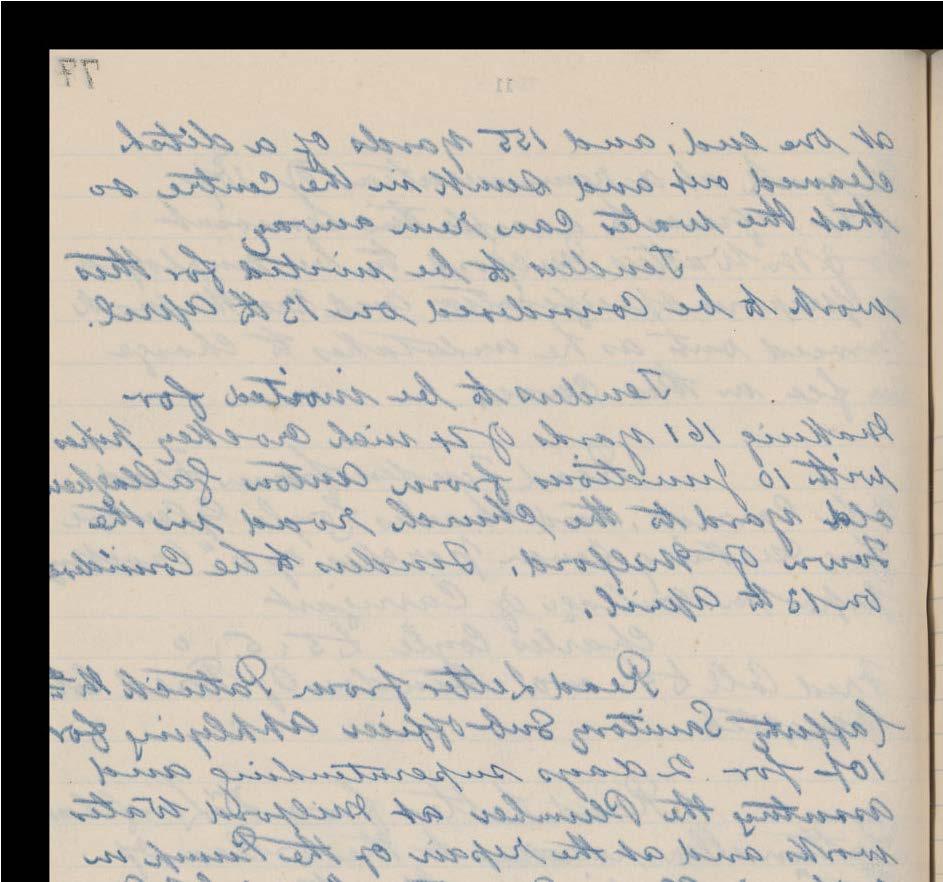 77
11
at one end, and 155 yards of a ditch
cleaned out and sunk in the Centre so
that the water can run away
Tenders to be invited for this
work to be Considered on 13th April.
Tenders to be invited for
making 161 yards of 4 inch Crockery pipes
with 10 junctions from Anton Gallagher
old yard to the Church road in the
Town of Milford. Tenders to be Considered
on 13th April.
Read Letter from Patrick
Lafferty Sanitary Sub officer applying for
10/- for 2 days superintending and
assisting the Plumber at Milford Water
works and at the repair of the Pump in